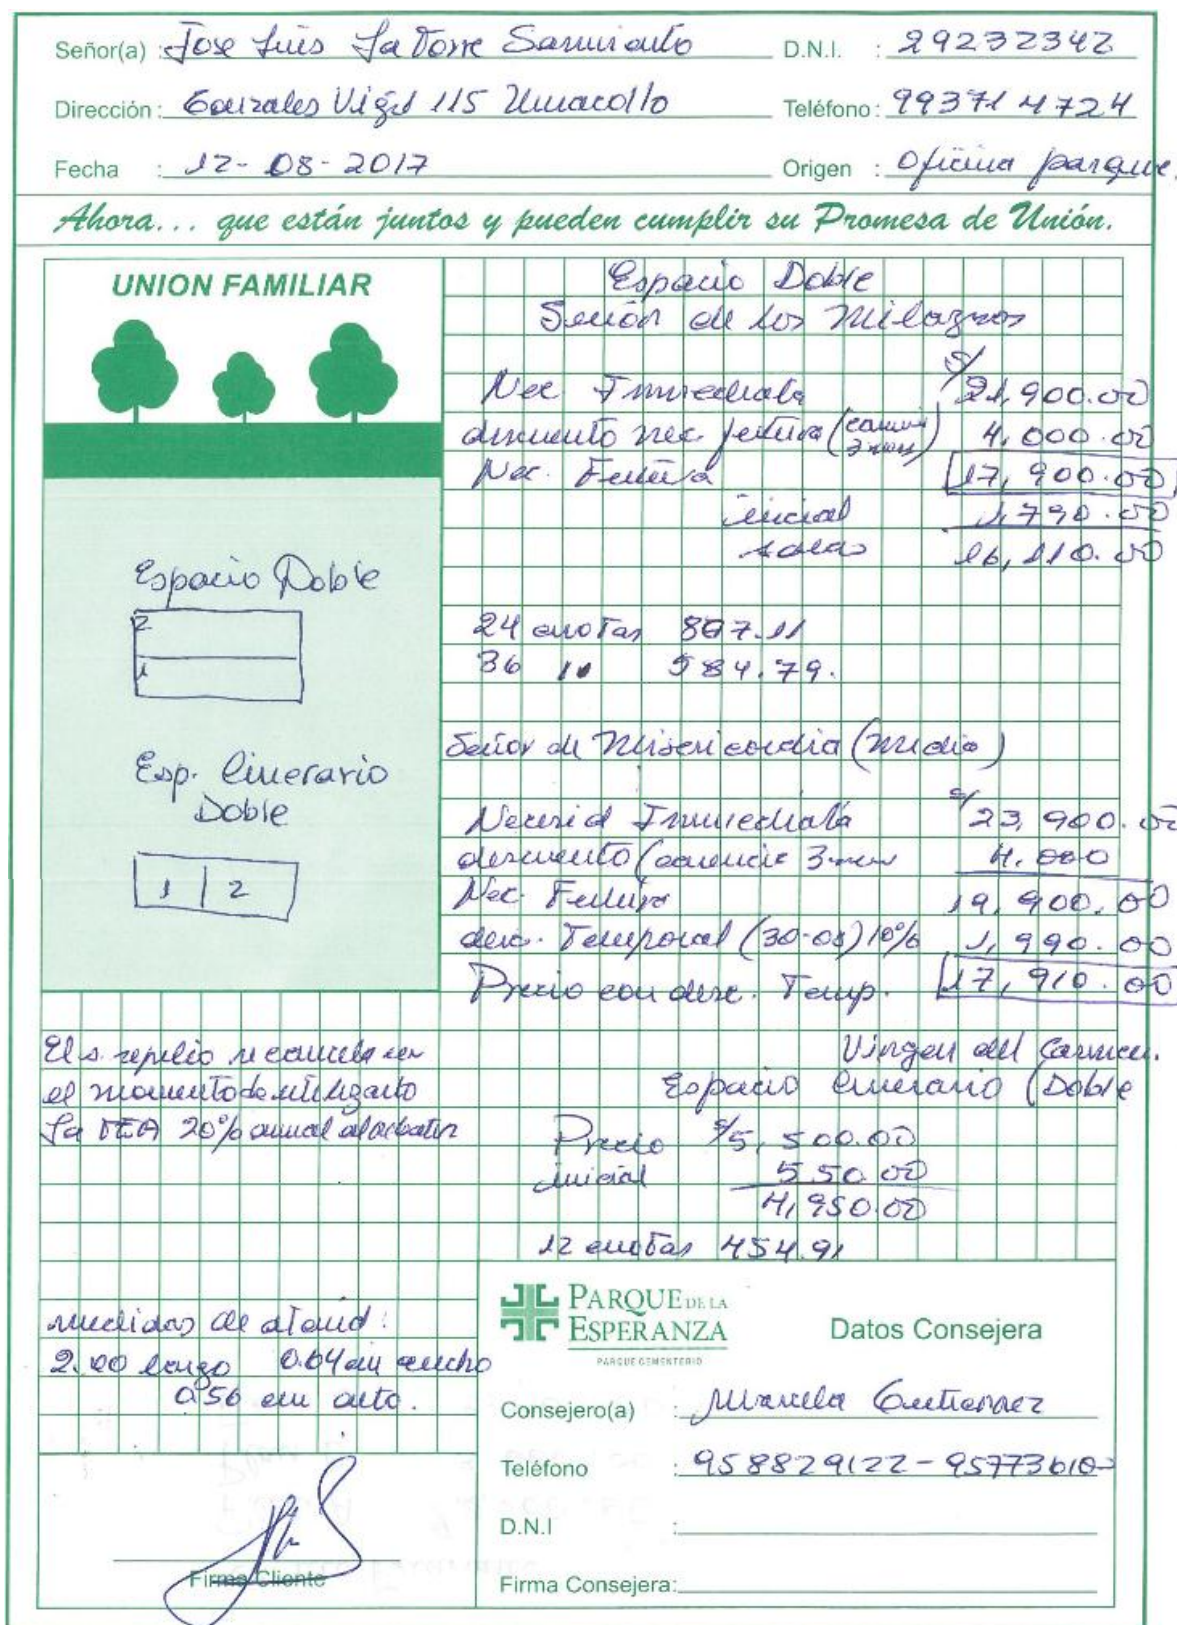 Señor(a) : Jose Luis La Torre Sarmiento D.N.I. : 29232342
Dirección : Gonzales Vigil 115 Umacollo Teléfono : 993714724
Fecha : 12-08-2017 Origen : Oficina parque.
Ahora... que están juntos y pueden cumplir su Promesa de Unión.
UNION FAMILIAR
Espacio Doble
2
1
Esp. Cinerario
Doble
1 2
Espacio Doble
Señor de los Milagros
Nec Inmediata S/ 21,900.00
descuento nec. futura (carencia 3 mes) 4,000.00
Nec. Futura 17,900.00
inicial 1,790.00
saldo 16,110.00
24 cuotas 807.11
36 " 584.79.
Señor de Misericordia (Medio)
Necesid Inmediata S/ 23,900.00
descuento (carencia 3 mes 4.000
Nec. Futura 19,900.00
desc. Temporal (30-08) 10% 1,990.00
Precio con desc. Temp. 17,910.00
El s. sepelio se cancela en
el momento de utilizarlo
La TEA 20% anual al rebatir
Virgen del Carmen.
Espacio Cinerario (Doble
Precio S/ 5,500.00
inicial 550.00
4,950.00
12 cuotas 454.91
medidas de ataud:
2.00 largo 0.64 cm ancho
0.56 cm alto.
PARQUE DE LA
ESPERANZA
PARQUE CEMENTERIO
Datos Consejera
Consejero(a) : Gutierrez
Teléfono : 958829122-957736100
D.N.I :
Firma Consejera:
Firma Cliente